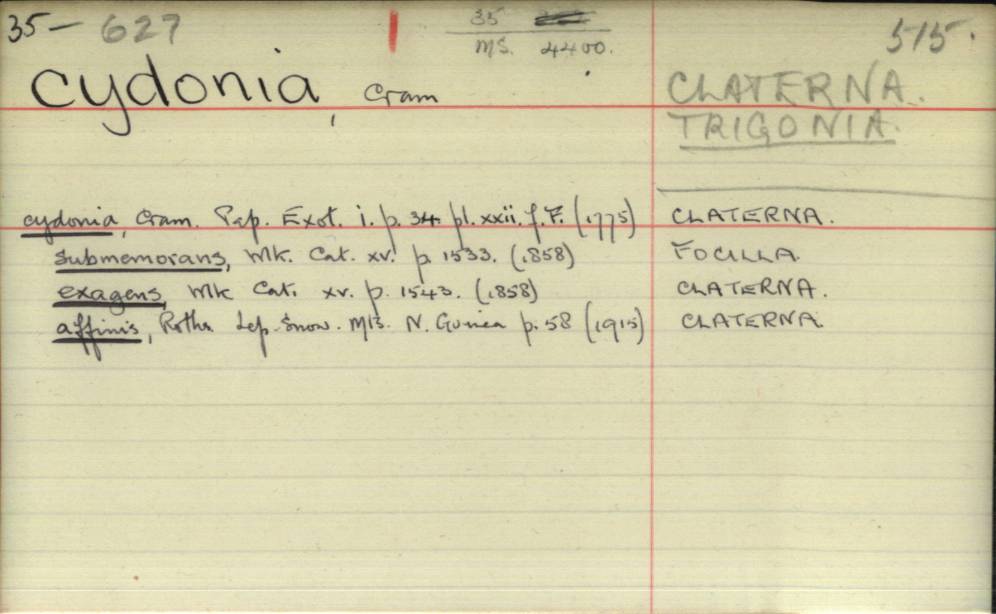 35 — 627 35 515.
MS. 4400.
cydonia, Cram CLATERNA.
TRIGONIA.
cydonia, Cram. Pap. Exot. i. p. 34. pl. xxii. f. F. (1775) CLATERNA.
submemorans, Wlk. Cat. xv. p. 1533. (1858) FOCILLA.
exagens, Wlk Cat. xv. p. 1543. (1858) CLATERNA.
affinis, Roths. Lep. Snow. Mts. N. Guinea p. 58 (1915) CLATERNA.